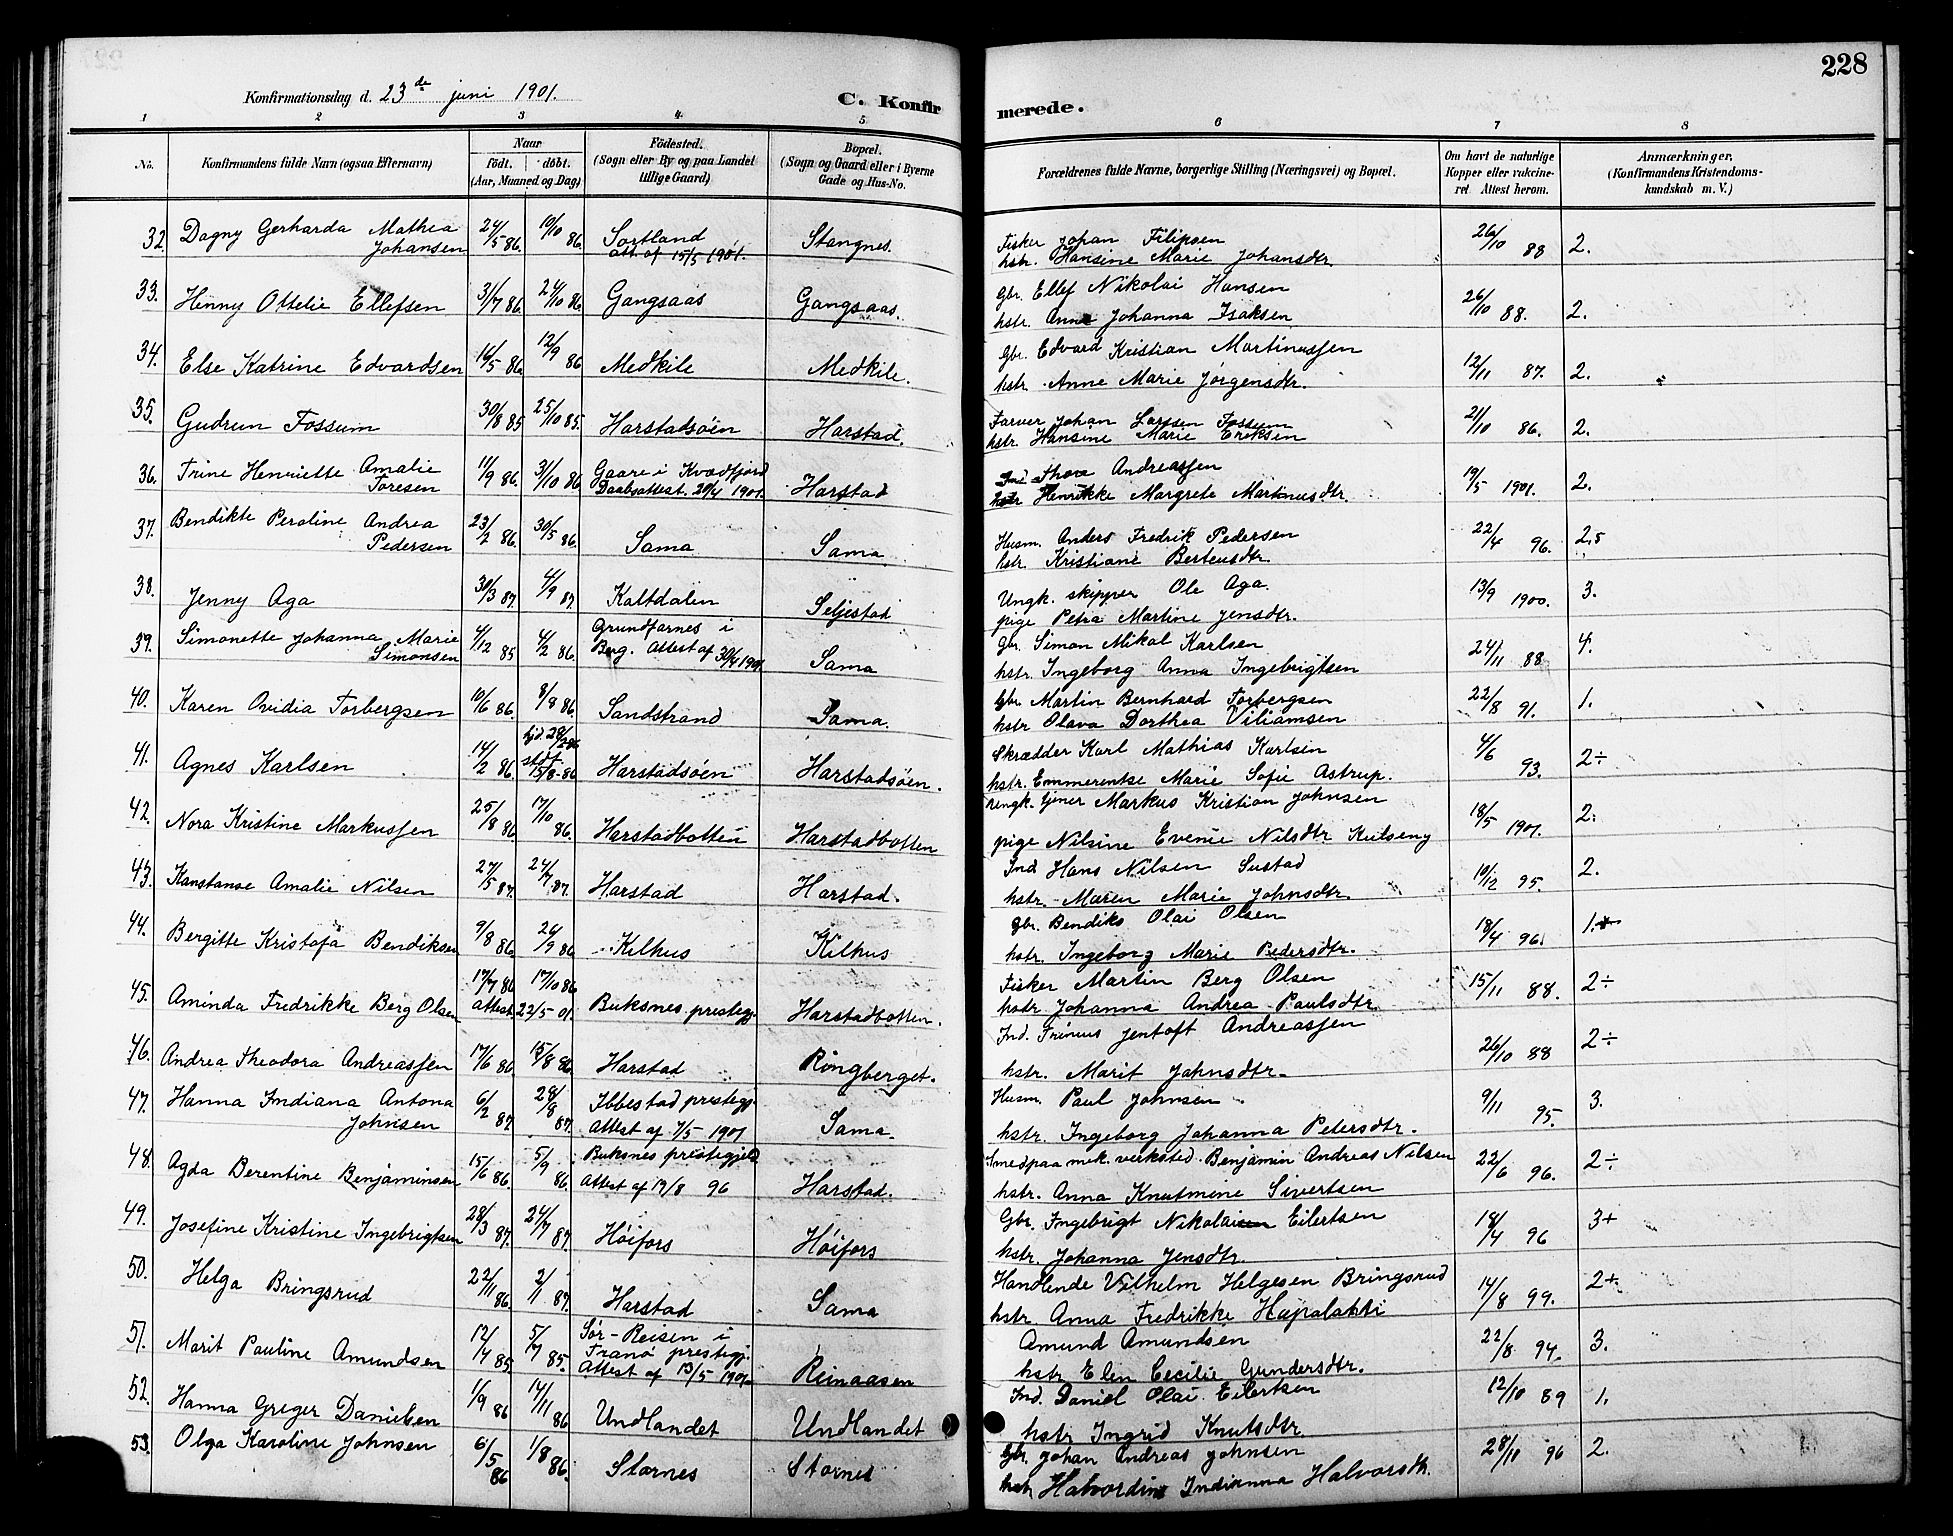 228
Konfirmationsdag d. 23de juni 1901.
C. Konfirmerede.
1 2 3 4. 5 6 7 8
No. Konfirmandens fulde Navn (ogsaa Efternavn) Naar födt. döbt. (Aar, Maaned og Dag) Födested. (Sogn eller By og paa Landet tillige Gaard) Bopæl. (Sogn og Gaard eller i Byerne Gade og Hus-No. Forældrenes fulde Navne, borgerlige Stilling (Næringsvei) og Bopæl. Om havt de naturlige Kopper eller vakcineret. Attest herom. Anmærkninger. (Konfirmandens Kristendomskundskab m. V.)
32. Dagny Gerharda Mathea Johansen 24/5 86. 10/10 86. Sortland att. af 15/5 1901. Stangnes. Fisker Johan Filipsen hstr. Hansine Marie Johansdtr. 26/10 88 2.
33. Henny Ottelie Ellefsen 31/7 86. 24/10 86. Gangsaas Gangsaas. Gbr. Ellef Nikolai Hansen hstr. Anne Johanna Isaksen 26/10 88. 2.
34. Else Katrine Edvardsen 16/5 86. 12/9 86 Medkile Medkile. Gbr. Edvard Kristian Martinussen hstr. Anne Marie Jørgensdtr. 12/11 87. 2.
35. Gudrun Fossum 30/8 85 25/10 85. Harstadsöen Harstad. Farver Johan Larssen Fossum hstr. Hansine Marie Eriksen 21/10 86. 2.
36. Trine Henriette Amalie Toresen 11/9 86. 31/10 86 Gaare i Kvædfjord Daabsattest. 20/4 1901. Harstad Ind Thore Andreassen hstr Henrikke Margrete Martinusdtr. 19/5 1901. 2.
37. Bendikte Peroline Andrea Pedersen 23/2 86. 30/5 86. Sama Sama. Husm. Anders Fredrik Pedersen hstr. Kristiane Berteusdtr. 22/4 96. 2,5
38. Jenny Aga 30/3 87. 4/9 87. Kaltdalen Seljestad Ungk. skipper Ole Aga. pige Petra Martine Jensdtr. 13/9 1900. 3.
39. Simonette Johanna Marie Simonsen 4/12 85 4/2 86. Grundfarnes i Berg. Attest af 30/4 1901. Sama Gbr. Simon Mikal Karlsen hstr. Ingeborg Anna Ingebrigtsen 24/11 88 4.
40. Karen Ovidia Torbergsen 10/6 86. 8/8 86. Sandstrand Sama. Gbr Martin Bernhard Torbergsen hstr Olava Dorthea Viliamsen 22/8 91. 1.
41. Agnes Karlsen 14/2 86. hjd. 28/2 86 stdf. 15/8 86 Harstadsöen Harstadsöen. Skrædder Karl Mathias Karlsen hstr. Emmerentse Marie Sofie Astrup. 4/6 93. 2÷
42. Nora Kristine Markussen 25/8 86 17/10 86. Harstadbotten Harstadbotten ungk. tjener Markus Kristian Johnsen pige Nilsine Evenie Nilsdtr. Kulseng 18/5 1901. 2.
43. Konstanse Amalie Nilsen 27/5 87. 24/7 87. Harstad Harstad. Ind Hans Nilsen Sustad hstr. Maren Marie Johnsdtr. 10/12 95. 2.
44. Bergitte Kristofa Bendiksen 9/8 86. 26/9 86 Kilhus Kilhus Gbr. Bendiks Olai Olsen hstr. Ingeborg Marie Pedersdtr. 18/4 96. 1.
45. Aminda Fredrikke Berg Olsen 17/7 86 17/10 86 attest 22/5 01. Buksnes prestegj. Harstadbotten. Fisker Martin Berg Olsen hstr Johanna Andrea Paulsdtr. 15/11 88. 2÷
46. Andrea Theodora Andreassen 17/6 86. 15/8 86. Harstad Ringberget. Ind. Trinus Jentoft Andreassen hstr. Marit Johnsdtr. 26/10 88 2÷
47. Hanna Indiana Antona Johnsen 6/2 87. 28/8 87. Ibbestad prestegj. Attest af 7/5 1901 Sama. Husm. Paul Johnsen hstr. Ingeborg Johanna Petersdtr. 9/11 95. 3.
48. Agda Berentine Benjaminsen 15/6 86. 5/9 86. Buksnes prestegjeld Attest af 19/8 96 Harstad. Smed paa mek. verksted. Benjamin Andreas Nilsen hstr. Anna Knutmine Sivertsen 22/6 96. 2÷
49. Josefine Kristine Ingebrigtsen 28/3 87. 24/7 87. Höifors Höifors Gbr. Ingebrigt Nikolaisen Eilertsen hstr. Johanna Jensdtr. 18/4 96 3+
50. Helga Bringsrud 22/11 86. 2/1 87. Harstad Sama Handlende Vilhelm Helgesen Bringsrud hstr. Anna Fredrikke Hapalahti 14/8 99. 2+
51. Marit Pauline Amundsen 12/4 85. 5/7 85. Sör-Reisen i Tranö prestegj. Attest af 13/5 1901. Reinaasen Amund Amundsen hstr Elen Cecilie Gundersdtr. 22/8 94. 3.
52. Hanna Greger Danielsen 1/9 86 14/11 86 Undlandet Undlandet Ind. Daniel Olai Eilertsen hstr Ingrid Knutsdtr. 12/10 89 1.
53. Olga Karoline Johnsen 6/5 86 1/8 86. Stornes Stornes Gbr. Johan Andreas Johnsen hstr Halvordine Indianna Halvorsdtr. 28/10 96 2.